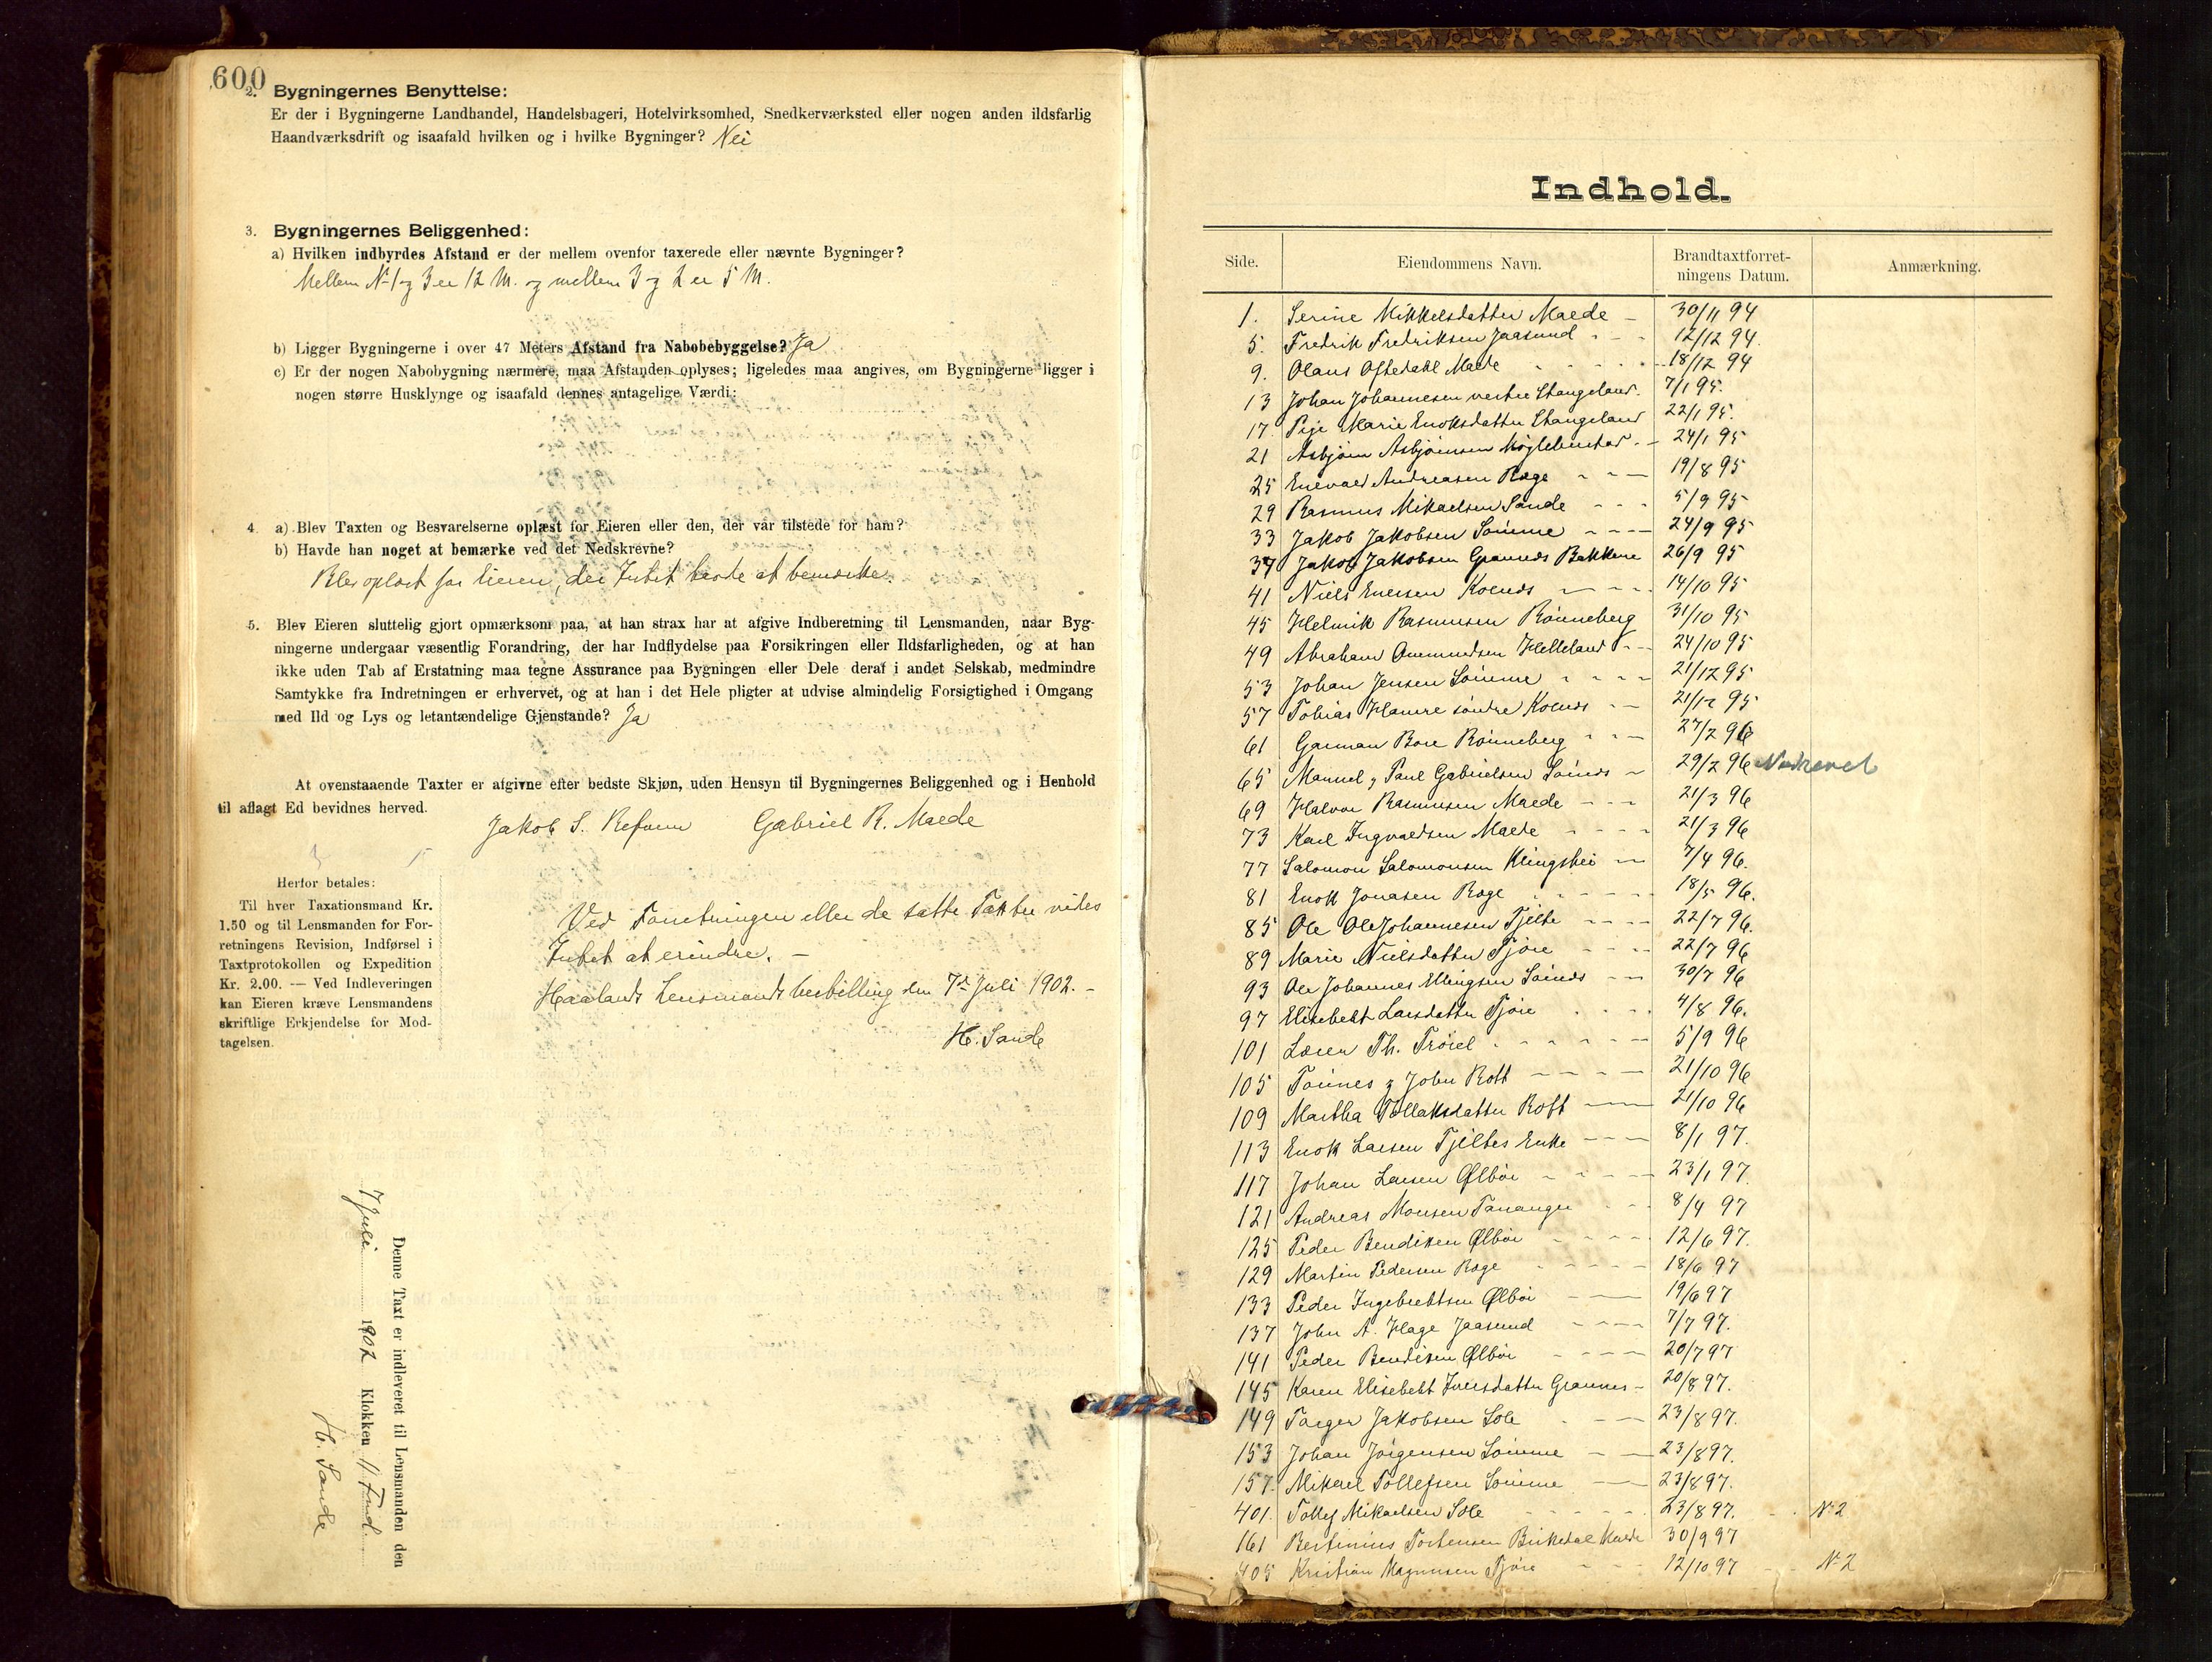 600
2. Bygningernes Benyttelse:
Er der i Bygningerne Landhandel, Handelsbageri, Hotelvirksomhed, Snedkerværksted eller nogen anden ildsfarlig
Haandværksdrift og isaafald hvilken og i hvilke Bygninger? Nei
3. Bygningernes Beliggenhed:
a) Hvilken indbyrdes Afstand er der mellem ovenfor taxerede eller nævnte Bygninger?
Mellem No 1 og 3 er 12 M. og mellem 3 og 2 er 5 M.
b) Ligger Bygningerne i over 47 Meters Afstand fra Nabobebyggelse? Ja
c) Er der nogen Nabobygning nærmere, maa Afstanden oplyses; ligeledes maa angives, om Bygningerne ligger i
nogen større Husklynge og isaafald dennes antagelige Værdi:
4. a) Blev Taxten og Besvarelserne oplæst for Eieren eller den, der var tilstede for ham?
b) Havde han noget at bemærke ved det Nedskrevne?
Blev oplæst for Eieren, der Intet havde at bemærke.
5. Blev Eieren sluttelig gjort opmærksom paa, at han strax har at afgive Indberetning til Lensmanden, naar Byg-
ningerne undergaar væsentlig Forandring, der har Indflydelse paa Forsikringen eller Ildsfarligheden, og at han
ikke uden Tab af Erstatning maa tegne Assurance paa Bygningen eller Dele deraf i andet Selskab, medmindre
Samtykke fra Indretningen er erhvervet, og at han i det Hele pligter at udvise almindelig Forsigtighed i Omgang
med Ild og Lys og letantændelige Gjenstande? Ja
At ovenstaaende Taxter er afgivne efter bedste Skjøn, uden Hensyn til Bygningernes Beliggenhed og i Henhold
til aflagt Ed bevidnes herved.
Jakob S. Gabriel R. Malde
Herfor betales:
Til hver Taxationsmand Kr.
1.50 og til Lensmanden for For-
retningens Revision, Indførsel i
Taxtprotokollen og Expedition
Kr. 2.00. — Ved Indleveringen
kan Eieren kræve Lensmandens
skriftlige Erkjendelse for Mod-
tagelsen.
Ved Forretningen eller de satte Taxter vides
Intet at erindre. —
Haalands Lensmandsbestilling den 7de Juli 1902. —
H. Sande
Denne Taxt er indleveret til Lensmanden den
7 Juli 1902 Klokken 11 Fmd.
H. Sande
Indhold.
Side. Eiendommens Navn. Brandtaxtforret-
ningens Datum. Anmærkning.
1. Serine Mikkelsdatter Malde — 30/11 94
5. Fredrik Fredriksen Jaasund - - 12/12 94.
9. Olaus Oftedahl Malde - - 18/12 94
13 Johan Johannesen vestre Stangeland. 7/1 95.
17. Marie Enoksdatter Stangeland 22/1 95.
21 Asbjörn Asbjörnsen - 24/1 95
25 Enevald Andreasen Ræge - - 19/8 95
29 Rasmus Mikaelsen Sande - - 5/9 95
33 Jakob Jakobsen Sömme - - - 24/9 95
37 Jakob Jakobsen Grannes Bakkene 26/9 95
41 Niels Enersen Kolnes - - 14/10 95
45 Helmik Rasmusen Rönneberg 31/10 95
49 Abraham Helleland - - 24/10 95
53 Johan Jensen Sömme - - - - 21/12 95
57 Tobias Hamre söndre Kolnes - - 21/12 95
61 Garman Bore Rönneberg - - - 27/2 96
65 Manuel & Paul Gabrielsen Sömes - 29/2 96
69 Halvor Rasmusen Malde - - - 21/3 96
73 Karl Ingvaldsen Malde - - - - 21/3 96
77 Salomon Salomonsen Klingshei - 7/4 96.
81 Enok Jonasen Ræge - - - - 18/5 96.
85 Ole OleJohannesen Tjelte - - - - 22/7 96.
89 Marie Nielsdatter Tjöre - - - 22/7 96
93 Ole Johannes Ellingsen Sömes - - 30/7 96
97 Elisebeht Larsdatter Tjöre - - - 4/8 96.
101 Th. - - - - - 5/9 96
105 Tönnes & John Rott - - - - 21/10 96
109 Martha Tollaksdatter Rott - - 21/10 96
113 Enok Larsen Tjeltes Enke - - - 8/1 97.
117 Johan Larsen Ølbör - - - - 23/1 97.
121 Andreas Monsen Tananger - - 8/4 97
125 Peder Bendiksen Ølbör - - - - 12/6 97.
129 Martin Pedersen Ræge - - - - - 18/6 97
133 Peder Ingebrektsen Ølbör - - 19/6 97
137 John A. Hage Jaasund - - - - 7/7 97.
141 Peder Bendiksen Ølbör - - - - 20/7 97
145 Karen Elisebeht Iversdatter Grannes - 20/8 97.
149 Torger Jakobsen Sole - - - 23/8 97.
153 Johan Jörgensen Sömme - - 23/8 97.
157. Mikael Tollefsen Sömme — 23/8 97.
401. Tollef Mikaelsen Sole - - - - 23/8 97. No 2
161 Bertinius Torkensen Birkedal Malde 30/9 97
405 Kristian Magnusen Tjöre - - 12/10 97 No 2